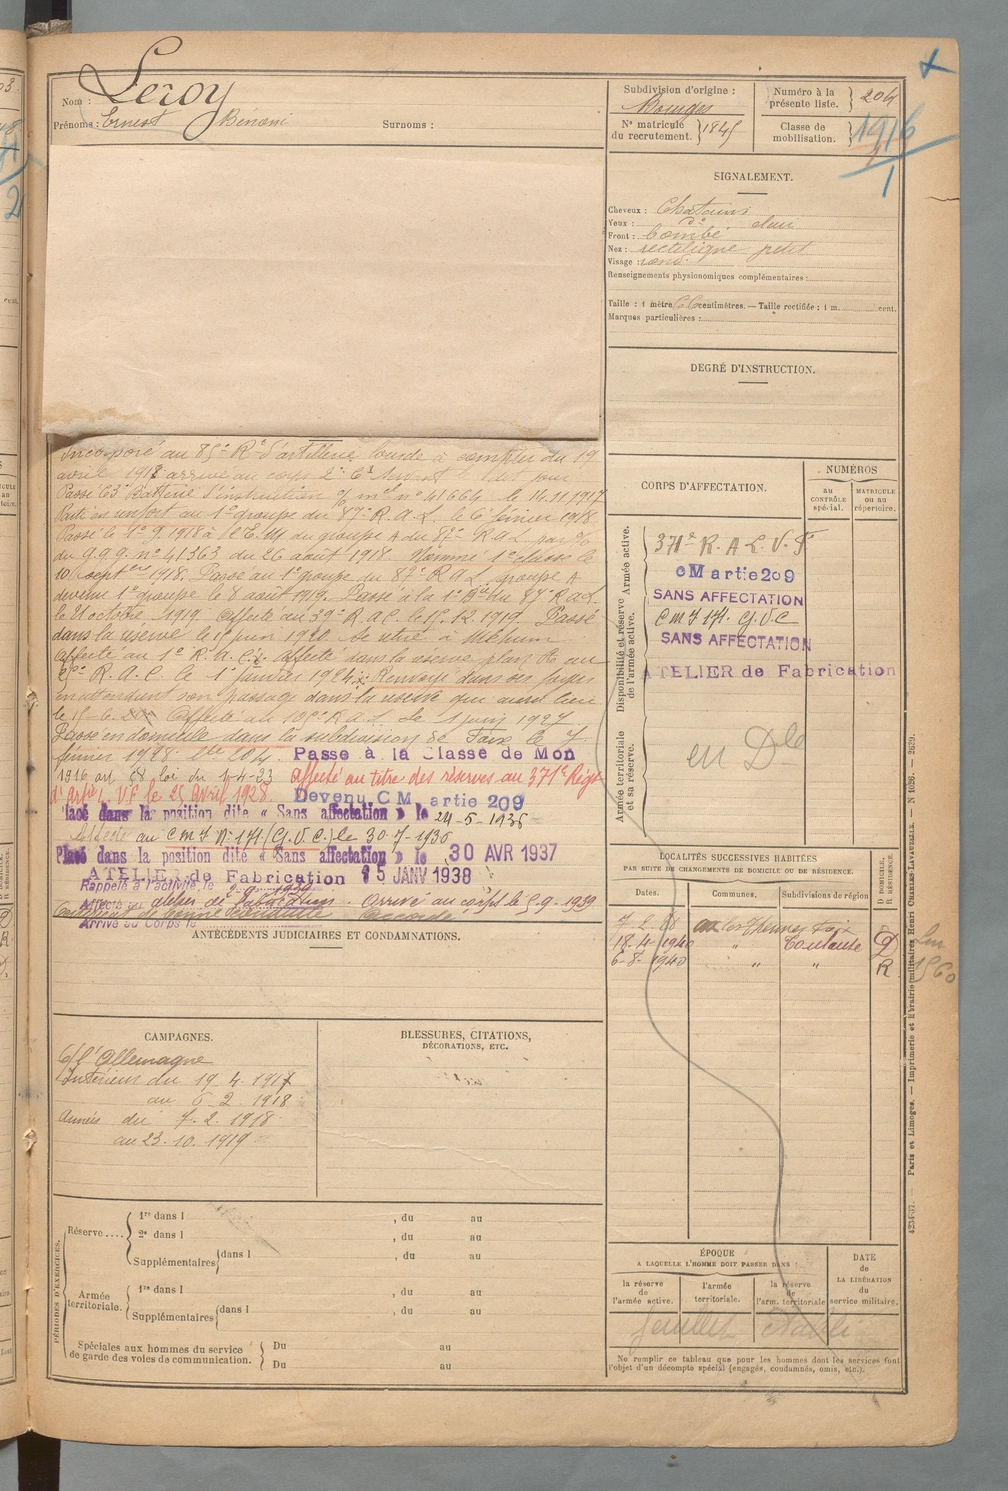 Nom : Leroy
Prénoms : Ernest Surnoms :
Subdivision d'origine :
Bourges
Numéro à la présente liste. } 204
N° matricule du recrutement. } 1845
Classe de mobilisation. } 1916
1
SIGNALEMENT.
Cheveux : Chatains
Yeux : d° clair
Front : bombé
Nez : rectiligne petit
Visage : rond
Renseignements physionomiques complémentaires :
Taille : 1 mètre 66 centimètres. — Taille rectifiée : 1 m. cent.
Marques particulières :
DEGRÉ D'INSTRUCTION.
Incorporé au 85e Rt d'artillerie lourde à compter du 19
avril 1917 arrivé au corps
Passé 63e Batterie d'instruction n° 41664 le 14.11.1917
Parti en renfort au 1er groupe du 87e R.A.L. le 6 février 1918
Passé le 1-9-1918 à l'E.M. du groupe A du 87e R.A.L. par
du G.Q.G. n° 41363 du 26 août 1918. Nommé 1e classe le
10 septbre 1918. Passé au 1er groupe du 87e R.A.L. groupe A
devenu 1er groupe le 8 août 1919. Passé à la 1e Bie du 87e R.A.L.
le 21 octobre 1919. Affecté au 39e R.A.C. le 15.12.1919. Passé
dans la réserve le 1er juin 1920. Se retire à Mehun
Affecté au 1er R.A.C. Affecté dans la réserve plan R au
R.A.C. le 1er janvier 1924. Renvoyé dans ses foyers
en attendant son passage dans la réserve qui aura lieu
le 15-6. Affecté au 105e R.A.L. le 1 juin 1927
Passé en domicile dans la subdivision de Foix le 7
février 1928. Passe à la Classe de Mon
1916 art 58 loi du 1-4-23 Affecté au titre des réserves au 371e Régt
d'Artie L.V.F. le 25 avril 1928. Devenu CM artie 209
Placé dans la position dite « Sans affectation » le 24-5-1935
Affecté au CMI N° 171 (G.V.C.) le 30-7-1936
Placé dans la position dite « Sans affectation » le 30 AVR 1937
ATELIER de Fabrication 15 JANV 1938
Rappelé à l'activité le 2-9-1939
Affecté au atelier de Fabrication. Arrivé au corps le 5-9-1939
Certificat de bonne conduite Accordé
Arrivé au Corps le
ANTÉCÉDENTS JUDICIAIRES ET CONDAMNATIONS.
CORPS D'AFFECTATION.
NUMÉROS
AU CONTRÔLE spécial.
MATRICULE ou au répertoire.
Armée active.
Disponibilité et réserve de l'armée active.
Armée territoriale et sa réserve.
371e R.A.L.V.F
CM artie 209
SANS AFFECTATION
CMI 171. G.V.C
SANS AFFECTATION
ATELIER de Fabrication
en Dle
LOCALITÉS SUCCESSIVES HABITÉES
PAR SUITE DE CHANGEMENTS DE DOMICILE OU DE RÉSIDENCE.
D DOMICILE, R RÉSIDENCE.
Dates. Communes. Subdivisions de région
7-2-28 Foix
18-4-1940 " D
6-8-1940 " " R
CAMPAGNES.
C/ l'Allemagne
Intérieur du 19.4.1917
au 6.2.1918
Armées du 7.2.1918
au 23.10.1919
BLESSURES, CITATIONS,
DÉCORATIONS, ETC.
PÉRIODES D'EXERCICES.
Réserve .... { 1re dans l , du au
2e dans l , du au
Supplémentaires { dans l , du au
Armée territoriale. { 1re dans l , du au
, du au
Supplémentaires { dans l , du au
, du au
Spéciales aux hommes du service de garde des voies de communication. { Du au
Du au
ÉPOQUE
A LAQUELLE L'HOMME DOIT PASSER DANS :
la réserve de l'armée active.
l'armée territoriale.
la réserve de l'arm. territoriale
DATE de LA LIBÉRATION du service militaire.
Feuillet
Ne remplir ce tableau que pour les hommes dont les services font
l'objet d'un décompte spécial (engagés, condamnés, omis, etc.).
4234-37. — Paris et Limoges. — Imprimerie et librairie militaires Henri CHARLES-LAVAUZELLE. — N 1026. — 2629.